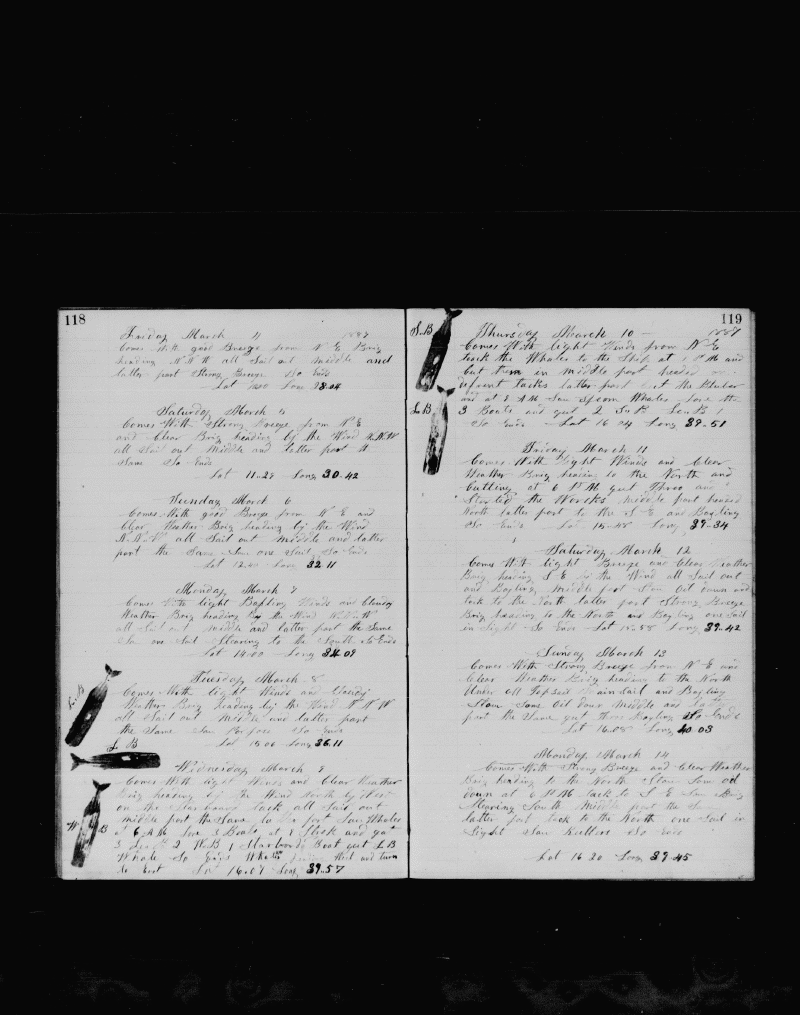 118
Friday March 4 1887
Comes With good Breeze from N E Brig
heading N N W all Sail out middle and
latter part Strong Breeze So Ends
Lat Long 28.04
Saturday March 5
Comes With Strong Breeze from N E
and Clear Brig heading by the Wind N.N.W
all Sail out Middle and latter part the
Same So Ends
Lat 11-29 Long 30.42
Sunday March 6
Comes With good Breeze from N E and
Clear Weather Brig heading by the Wind
N.N.W all Sail out middle and latter
part the Same Saw one Sail So Ends
Lat Long 32.11
Monday March 7
Comes With light Baffling Winds and Cloudy
Weather Brig heading by the Wind
all Sail out middle and latter part the Same
Saw one Sail Stearing to the South So Ends
Lat 14.00 Long 34.09
Tuesday March 8
Comes With light Winds and Cloudy
Weather Brig heading by the Wind N N W
all Sail out Middle and latter part
the Same Saw So Ends
L B
L B
Lat 15.06 Long 36.11
Wednesday March 9
Comes With light Winds and Clear Weather
Brig heading by the Wind North by West
on the Starboard tack all Sail out
middle part the Same latter part Saw Whales
at 6 A M 3 Boats at 8 Stock and got
W B
3 2 W.B 1 Starboard Boat got L B
Whale So Ends and turn
to East Lat 16.07 Long 39.57
119
S.B
Thursday March 10 1887
Comes With light Winds from N E
took the Whales to the Ship at P M and
Cut them in Middle part headed on
defrent tacks latter part Cut the Blubber
and at 8 A M Saw Sperm Whales the
L.B
3 Boats and got 2 L.B 1
So Ends Lat 16 04 Long 39-51
Friday March 11
Comes With Light Winds and Clear
Weather Brig heading to the North and
Cutting at 6 P M got Three and
Started the Works Middle part headed
North latter part to the S E and Boyling
So Ends Lat Long 39-34
Saturday March 12
Comes With light Breeze and Clear Weather
Brig heading S E by the Wind all Sail out
and Boyling middle part Oil down and
tack to the North latter part Strong Breeze
Brig heading to the North and Boyling one Sail
in Sight So Ends Lat Long 39.42
Sunday March 13
Comes With Strong Breeze from N E and
Clear Weather Brig heading to the North
Under all Topsail Main Sail and Boyling
Stow Som Oil down Middle and latter
part the Same got threw Boyling So Ends
Lat 16.08 Long 40.03
Monday March 14
Comes With Strong Breeze and Clear Weather
Brig heading to the North Stow Som oil
down at 6 P M tack to S E Saw Brig
Stearing South Middle part the Same
latter part tack to the North one Sail in
Sight Saw So Ends
Lat 16 20 Long 39.45